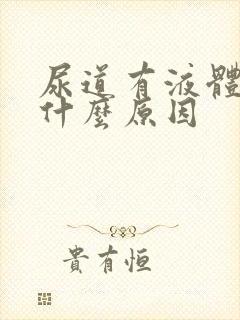 尿道有液體
什麼原因
貴有恒